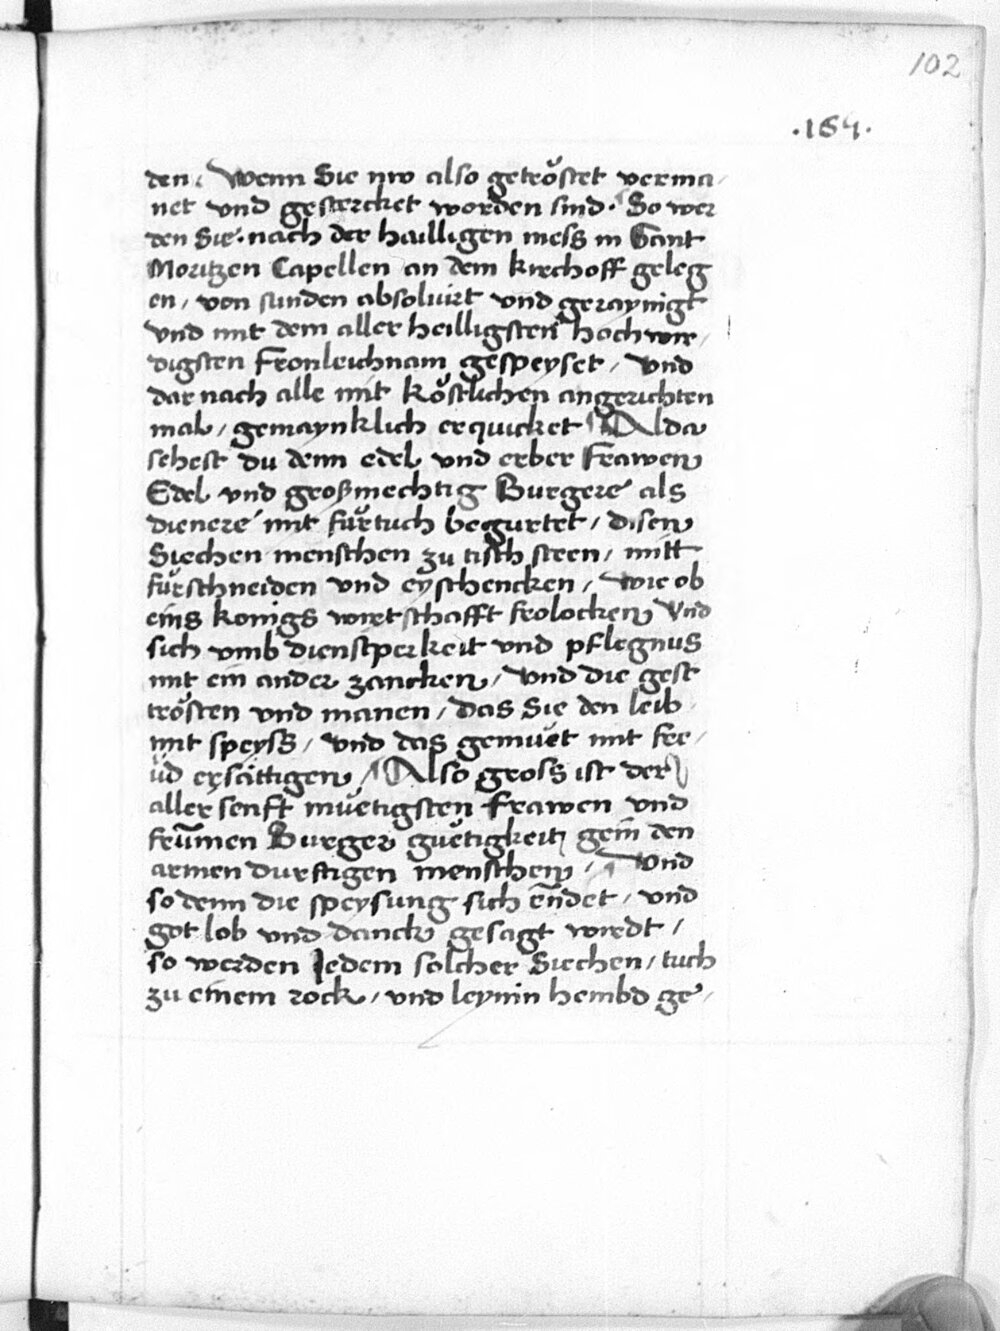 102
.164.
den. Wenn Sie nw also getröstet verma
net vnd gestercket worden sind. So wer
den Sie. nach der hailligen mess in Sant
Moritzen Capellen an dem kirchoff geleg
en, von sunden absoluirt vnd geraynigt
vnd mit dem aller heilligsten hochwir,
digsten Fronleichnam gespeyset, vnd
dar nach alle mit köstlichen angerichten
mal, gemaynklich erquicket Alda
sehest du denn edel vnd erber Frawen
Edel vnd großmechtig Burgere als
dienere mit fürtuch begurtet, disen
Siechen menschen zu tisch steen, mitt
fürschneiden vnd eyschencken, wie ob
eins konigs wirtschafft frolocken Vnd
sich vmb dienstperkeit vnd pflegnus
mit ein ander zancken, vnd die gest
trösten vnd manen, das Sie den leib
mit speyss, vnd das gemuet mit fre,
üd ersättigen, Also gross ist der
aller senfft muetigsten frawen vnd
frumen Burger guetigkeit gein den
armen durftigen menschen, Vnd
so denn die speysung sich endet, vnd
got lob vnd danck gesagt wirdt,
so werden Jedem solcher Siechen, tuch
zu einem rock, vnd leynin hembd ge,